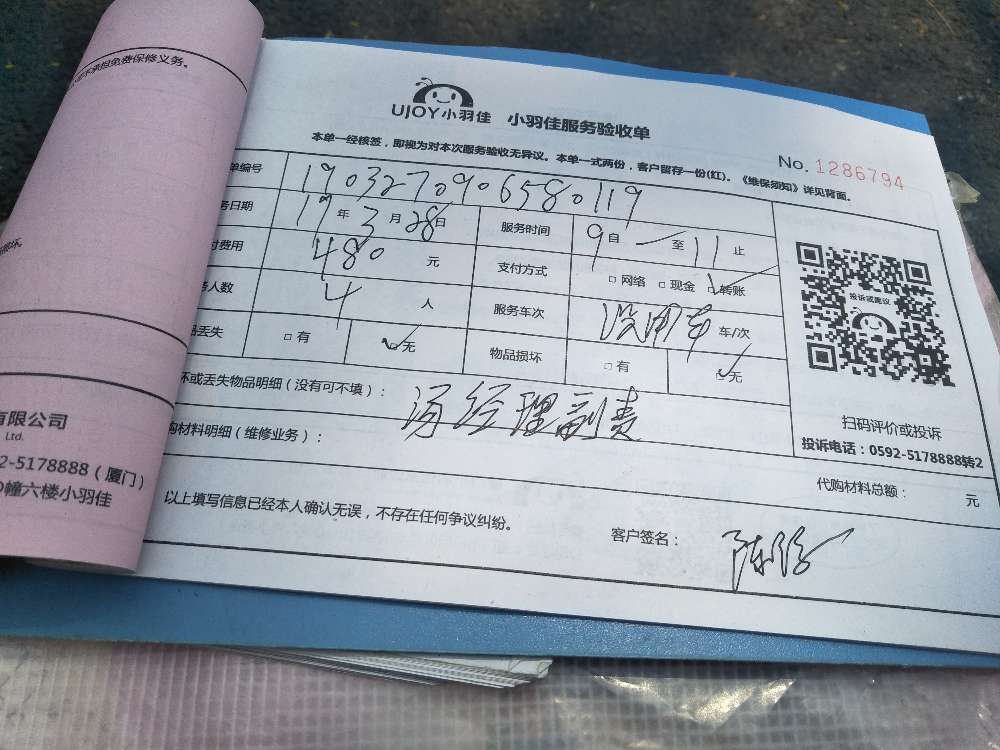 不承担免费保修义务。
损坏。
有限公司
Ltd.
2-5178888（厦门）
D幢六楼小羽佳
UJOY小羽佳 小羽佳服务验收单
本单一经核签，即视为对本次服务验收无异议。本单一式两份，客户留存一份(红)。《维保须知》详见背面。
No. 1286794
单编号 1903270906580119
务日期 19 年 3 月 28 日 服务时间 9 自 至 11 止
付费用 480 元 支付方式 □ 网络 □ 现金 □ 转账
务人数 4 人 服务车次 没用车 车/次
品丢失 □ 有 □ 无 物品损坏 □ 有 □ 无
投诉或建议
扫码评价或投诉
投诉电话：0592-5178888转2
坏或丢失物品明细（没有可不填）： 汤经理副责
购材料明细（维修业务）：
代购材料总额： 元
以上填写信息已经本人确认无误，不存在任何争议纠纷。
客户签名： 陈